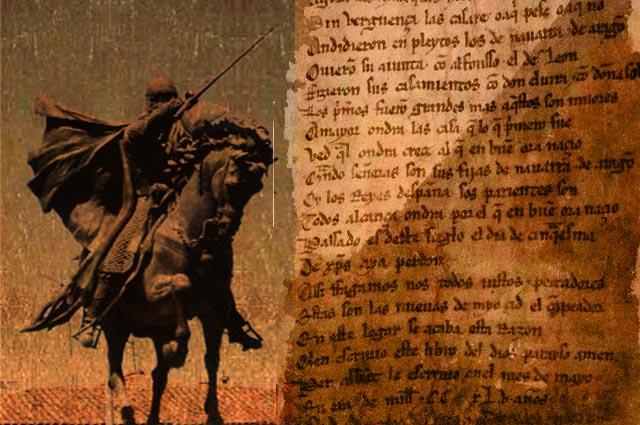 Sin verguença las casare o aq̃ pese o aq̃ nõ
Andidieron en pleytos los de nauarra ⁊ de aragõ
Ouierõ su aiunta cõ alfonsso el de Leon
Fizieron sus casamientos cõ don eluira ⁊ cõ doña sol
Los p̃meros fuerõ grandes mas aq̃stos son miiores
A mayor ondra las casa q̃ lo q̃ p̃mero fue
Ved q̃l ondra creçe al q̃ en buẽ ora naçio
Qũando señoras son sus fijas de nauarra ⁊ de aragõ
Oy los Reyes despaña sos parientes son
Todos alcança ondra por el q̃ en buẽ ora naçio
Passado es deste sieglo el dia de cinq̃esma
De xp̃s aya perdon
Assi ffagamos nos todos iustos ⁊ peccadores
Estas son las nueuas de myo çid el cãpeador
En este logar se acaba esta Razon
Quien escriuio este libro del dios parayso amen
Per abbat le escriuio enel mes de mayo
En era de mill ⁊ .CC xLv. años